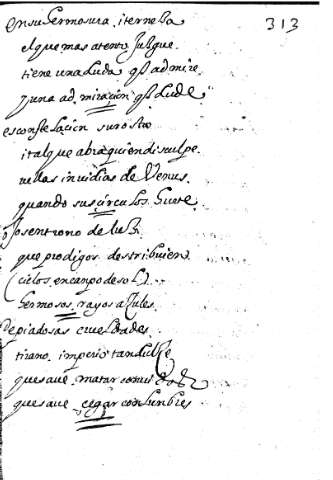 313
en su hermosura i terneza
el que mas atento Juzgue
tiene una duda q̃ admire
y una admiracion q̃ dude
es constelacion su rostro
i tal que abra quien disculpe
vellas invidias de Venus
quando sus circulos Surte
os en trono de luz
que prodigos destribuien
(cielos, en campo de sol)
hermosos rayos azules
De piadosas crueldades
tirano imperio tan dulze
que save matar con
que save cegar con lunbres